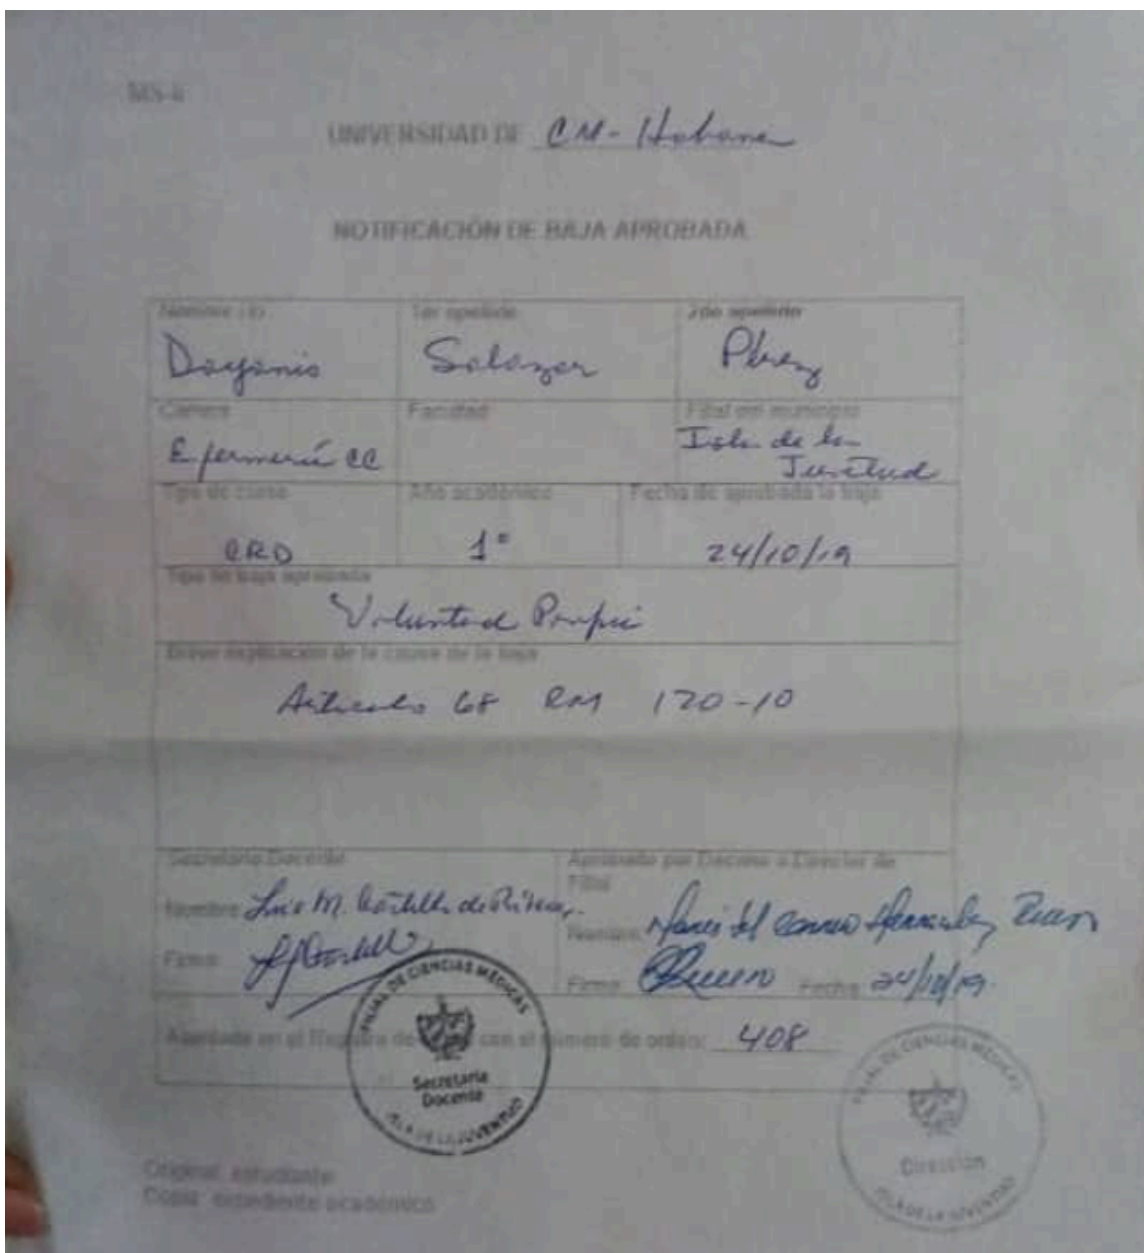 MS-6
UNIVERSIDAD DE CM - Habana
NOTIFICACIÓN DE BAJA APROBADA
Nombre (s) 1er apellido 2do apellido
Dayanis Salazar Pérez
Carrera Facultad Filial o municipio
Efermería CC Isla de la
Juventud
Tipo de curso Año académico Fecha de aprobada la baja
CRD 1º 24/10/19
Tipo de baja aprobada
Voluntad Propia
Breve explicación de la causa de la baja
Artículo 68 RM 120-10
Secretario Docente Aprobado por Decano o Director de
Filial
Nombre Luis M. Castillo de
Nombre María del Carmen Hernández
Firma
Firma Fecha 24/10/19
Asentada en el Registro de con el número de orden: 408
FILIAL DE CIENCIAS MEDICAS
Secretaria
Docente
ISLA DE LA JUVENTUD
FILIAL DE CIENCIAS MEDICAS
Dirección
ISLA DE LA JUVENTUD
Original: estudiante
Copia: expediente académico